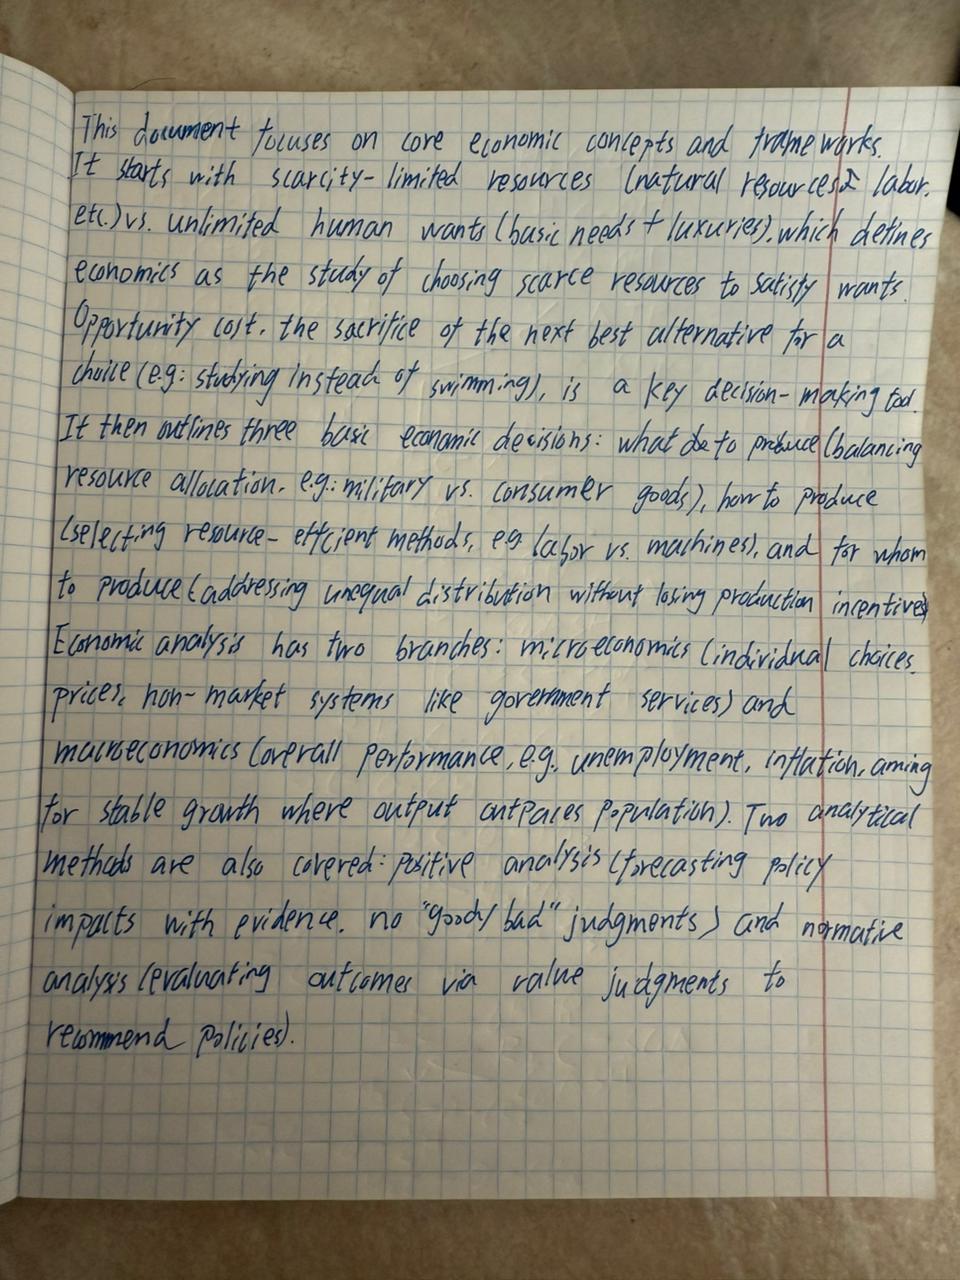 This document focuses on core economic concepts and frameworks.
It starts with scarcity-limited resources (natural resources, labor.
etc.) vs. unlimited human wants (basic needs + luxuries), which defines
economics as the study of choosing scarce resources to satisfy wants.
Opportunity cost, the sacrifice of the next best alternative for a
choice (e.g: studying instead of swimming), is a key decision-making tool.
It then outlines three basic economic decisions: what to produce (balancing
resource allocation. e.g.: military vs. consumer goods), how to produce
(selecting resource-efficient methods, e.g labor vs. machines), and for whom
to produce (addressing unequal distribution without losing production incentives)
Economic analysis has two branches: microeconomics (individual choices.
prices, non-market systems like government services) and
macroeconomics (overall performance, e.g., unemployment, inflation, aming
for stable growth where output outpaces population). Two analytical
methods are also covered: positive analysis (forecasting policy
impacts with evidence. no "good/bad" judgments) and normative
analysis (evaluating outcomes via value judgments to
recommend policies).